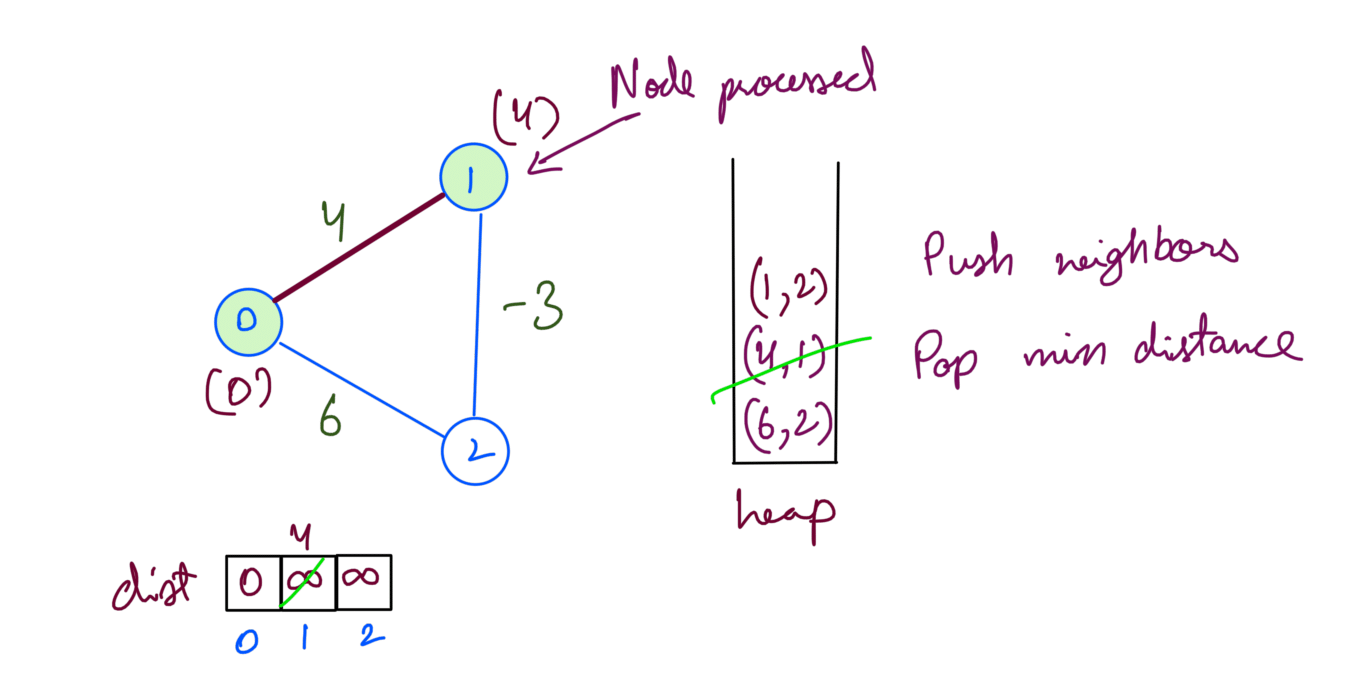 Node processed
(4)
1
4
0
(0)
-3
6
2
(1,2)
(4,1)
(6,2)
heap
Push neighbors
Pop min distance
4
dist 0 ∞ ∞
0 1 2